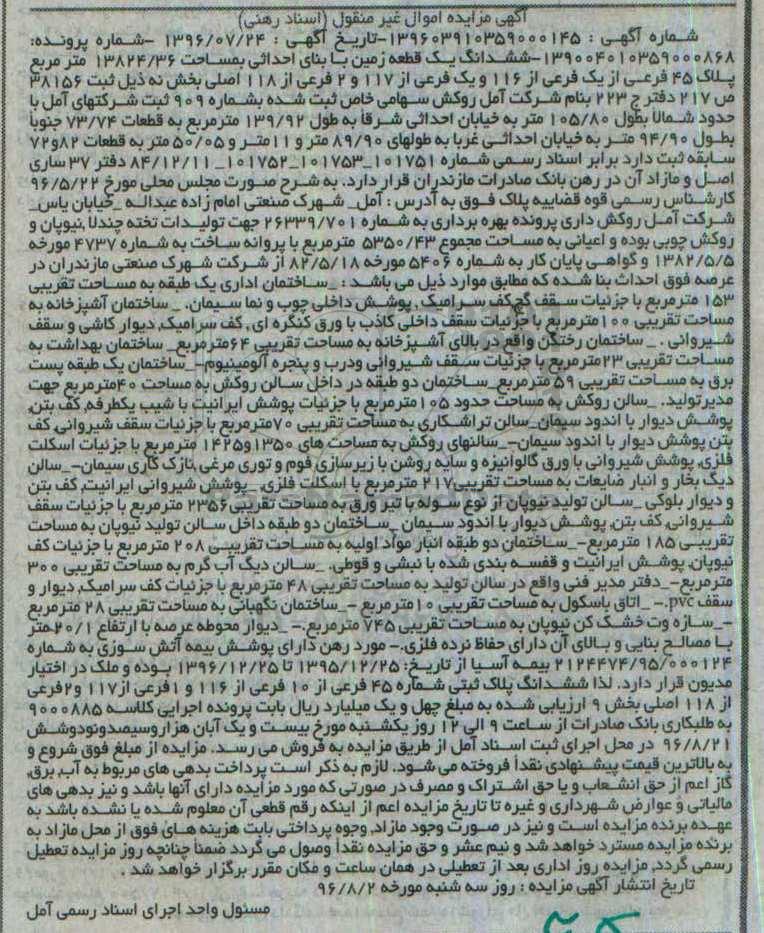 آگهی مزایده اموال غیر منقول (اسناد رهنی)
شماره آگهی : ۱۳۹۶۰۳۹۱۰۳۵۹۰۰۰۱۴۵-تاریخ آگهی : ۱۳۹۶/۰۷/۲۴ -شماره پرونده:
۱۳۹۰۰۴۰۱۰۳۵۹۰۰۰۸۶۸-ششدانگ یک قطعه زمین با بنای احداثی بمساحت ۱۳۸۲۴/۳۶ متر مربع
پلاک ۴۵ فرعی از یک فرعی از ۱۱۶ و یک فرعی از ۱۱۷ و ۲ فرعی از ۱۱۸ اصلی بخش نه ذیل ثبت ۳۸۱۵۶
ص ۲۱۷ دفتر ج ۲۲۳ بنام شرکت آمل روکش سهامی خاص ثبت شده بشماره ۹۰۹ ثبت شرکتهای آمل با
حدود شمالا بطول ۱۰۵/۸۰ متر به خیابان احداثی شرقا به طول ۱۳۹/۹۲ مترمربع به قطعات ۷۳/۷۴ جنوبا
بطول ۹۴/۹۰ متر به خیابان احداثی غربا به طولهای ۸۹/۹۰ متر و ۱۱متر و ۵۰/۰۵ متر به قطعات ۸۲و۷۲
سابقه ثبت دارد برابر اسناد رسمی شماره ۱۰۱۷۵۱_۱۰۱۷۵۳_۱۰۱۷۵۲_ ۸۴/۱۲/۱۱ دفتر ۳۷ ساری
اصل و مازاد آن در رهن بانک صادرات مازندران قرار دارد. به شرح صورت مجلس محلی مورخ ۹۶/۵/۲۲
کارشناس رسمی قوه قضاییه پلاک فوق به آدرس : آمل_ شهرک صنعتی امام زاده عبداله _خیابان یاس_
شرکت آمل روکش داری پرونده بهره برداری به شماره ۲۶۳۳۹/۷۰۱ جهت تولیدات تخته چندلا ,نیوپان و
روکش چوبی بوده و اعیانی به مساحت مجموع ۵۳۵۰/۴۳ مترمربع با پروانه ساخت به شماره ۴۷۳۷ مورخه
۱۳۸۲/۵/۵ و گواهی پایان کار به شماره ۵۴۰۶ مورخه ۸۲/۵/۱۸ از شرکت شهرک صنعتی مازندران در
عرصه فوق احداث بنا شده که مطابق موارد ذیل می باشد : _ساختمان اداری یک طبقه به مساحت تقریبی
۱۵۳ مترمربع با جزئیات سقف گچ,کف سرامیک , پوشش داخلی چوب و نما سیمان. _ ساختمان آشپزخانه به
مساحت تقریبی ۱۰۰مترمربع با جزئیات سقف داخلی کاذب با ورق کنگره ای , کف سرامیک, دیوار کاشی و سقف
شیروانی . _ ساختمان رختکن واقع در بالای آشپزخانه به مساحت تقریبی ۶۴مترمربع_ ساختمان بهداشت به
مساحت تقریبی ۲۳مترمربع با جزئیات سقف شیروانی ودرب و پنجره آلومینیوم-_ساختمان یک طبقه پست
برق به مساحت تقریبی ۵۹ مترمربع_ساختمان دو طبقه در داخل سالن روکش به مساحت ۴۰مترمربع جهت
مدیرتولید. _سالن روکش به مساحت حدود ۱۰۵مترمربع با جزئیات پوشش ایرانیت با شیب یکطرفه, کف بتن,
پوشش دیوار با اندود سیمان_سالن تراشکاری به مساحت تقریبی ۷۰مترمربع با جزئیات سقف شیروانی, کف
بتن پوشش دیوار با اندود سیمان-_سالنهای روکش به مساحت های ۱۳۵۰و۱۴۲۵ مترمربع با جزئیات اسکلت
فلزی, پوشش شیروانی با ورق گالوانیزه و سایه روشن با زیرسازی فوم و توری مرغی ,نازک کاری سیمان-_سالن
دیگ بخار و انبار ضایعات به مساحت تقریبی۲۱۷ مترمربع با اسکلت فلزی,_پوشش شیروانی ایرانیت, کف بتن
و دیوار بلوکی _سالن تولید نیوپان از نوع سوله با تیر ورق به مساحت تقریبی۲۳۵۶ مترمربع با جزئیات سقف
شیروانی, کف بتن, پوشش دیوار با اندود سیمان _ساختمان دو طبقه داخل سالن تولید نیوپان به مساحت
تقریبی ۱۸۵ مترمربع-_ساختمان دو طبقه انبار مواد اولیه به مساحت تقریبی ۲۰۸ مترمربع با جزئیات کف
نیوپان, پوشش ایرانیت و قفسه بندی شده با نبشی و قوطی. _سالن دیگ آب گرم به مساحت تقریبی ۳۰۰
مترمربع-_دفتر مدیر فنی واقع در سالن تولید به مساحت تقریبی ۴۸ مترمربع با جزئیات کف سرامیک, دیوار و
سقف pvc.-_اتاق باسکول به مساحت تقریبی ۱۰مترمربع -_ساختمان نگهبانی به مساحت تقریبی ۲۸ مترمربع
-_سازه وت خشک کن نیوپان به مساحت تقریبی ۷۴۵ مترمربع.-_دیوار محوطه عرصه با ارتفاع ۲۰/۱متر
با مصالح بنایی و بالای آن دارای حفاظ نرده فلزی.- مورد رهن دارای پوشش بیمه آتش سوزی به شماره
۲۱۲۴۴۷۴/۹۵/۰۰۰۱۲۴ بیمه آسیا از تاریخ: ۱۳۹۵/۱۲/۲۵ تا ۱۳۹۶/۱۲/۲۵ بوده و ملک در اختیار
مدیون قرار دارد. لذا ششدانگ پلاک ثبتی شماره ۴۵ فرعی از ۱۰ فرعی از ۱۱۶ و ۱فرعی از۱۱۷ و۲فرعی
از ۱۱۸ اصلی بخش ۹ ارزیابی شده به مبلغ چهل و یک میلیارد ریال بابت پرونده اجرایی کلاسه ۹۰۰۰۸۸۵
به طلبکاری بانک صادرات از ساعت ۹ الی ۱۲ روز یکشنبه مورخ بیست و یک آبان هزاروسیصدونودوشش
۹۶/۸/۲۱ در محل اجرای ثبت اسناد آمل از طریق مزایده به فروش می رسد. مزایده از مبلغ فوق شروع و
به بالاترین قیمت پیشنهادی نقدا فروخته می شود. لازم به ذکر است پرداخت بدهی های مربوط به آب, برق,
گاز اعم از حق انشعاب و یا حق اشتراک و مصرف در صورتی که مورد مزایده دارای آنها باشد و نیز بدهی های
مالیاتی و عوارض شهرداری و غیره تا تاریخ مزایده اعم از اینکه رقم قطعی آن معلوم شده یا نشده باشد به
عهده برنده مزایده است و نیز در صورت وجود مازاد, وجوه پرداختی بابت هزینه های فوق از محل مازاد به
برنده مزایده مسترد خواهد شد و نیم عشر و حق مزایده نقدا وصول می گردد ضمنا چنانچه روز مزایده تعطیل
رسمی گردد, مزایده روز اداری بعد از تعطیلی در همان ساعت و مکان مقرر برگزار خواهد شد .
تاریخ انتشار آگهی مزایده : روز سه شنبه مورخه ۹۶/۸/۲
مسئول واحد اجرای اسناد رسمی آمل